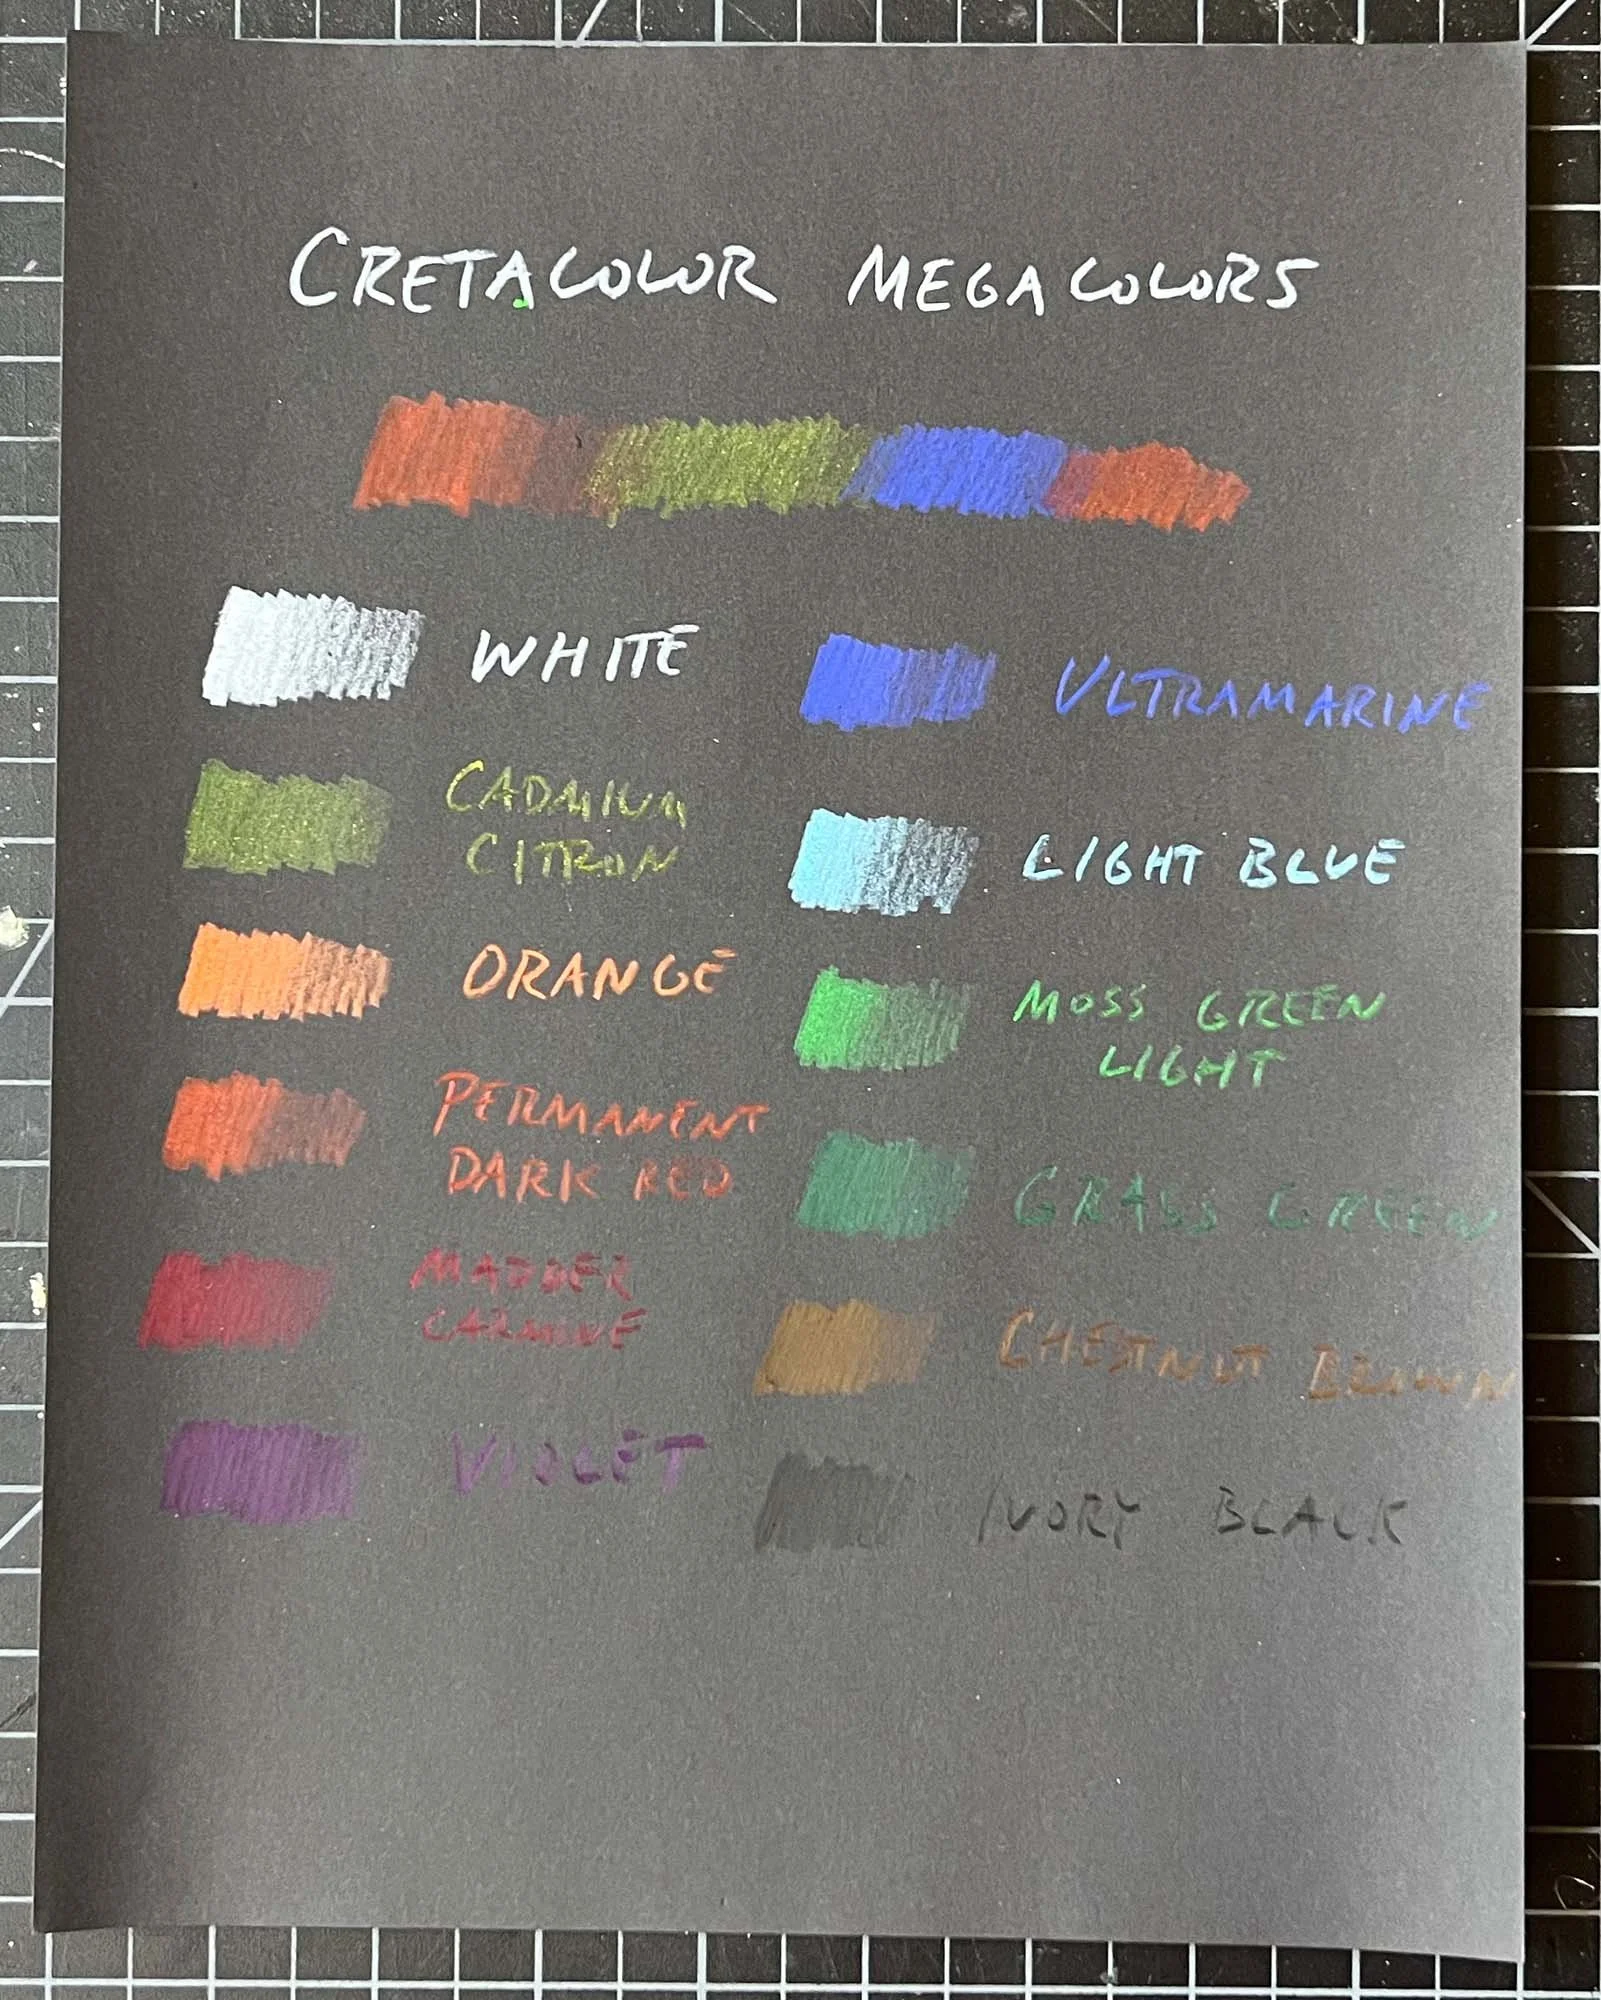 CRETACOLOR MEGACOLORS
WHITE
CADMIUM
CITRON
ORANGE
PERMANENT
DARK RED
MADDER
CARMINE
VIOLET
ULTRAMARINE
LIGHT BLUE
MOSS GREEN
LIGHT
GRASS GREEN
CHESTNUT BROWN
IVORY BLACK